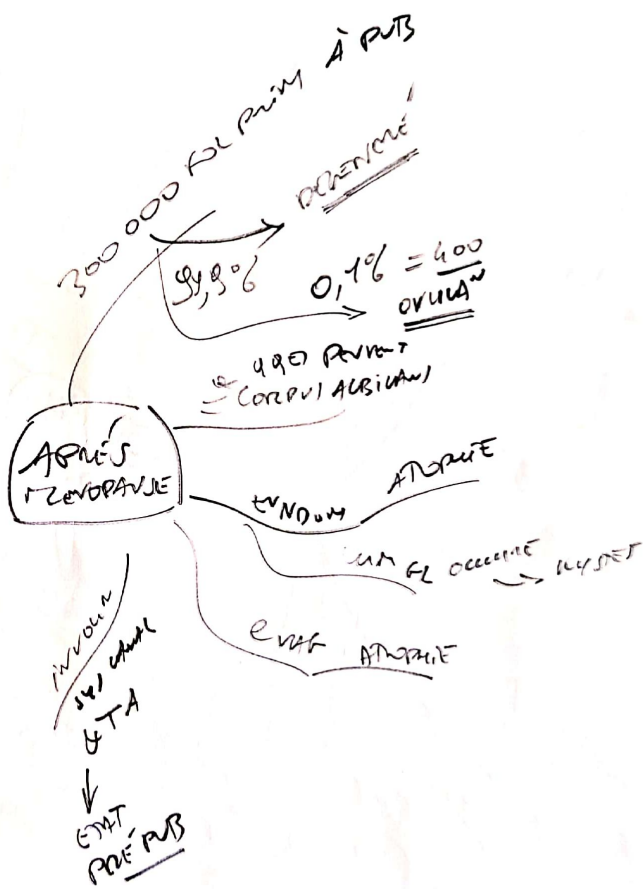 300 000 FOL PRIM À PUB
DÉGÉNÉRÉ
99,9%
0,1% = 400
OVULA°
PEUVENT
CORPUS ALBICANS
APRÈS
MENOPAUSE
ENDOM
ATROPHIE
GL OCCLUSE → KYSTES
VAG ATROPHIE
INVOLU°
SYS CANAL
& TA
ETAT
PRÉ PUB